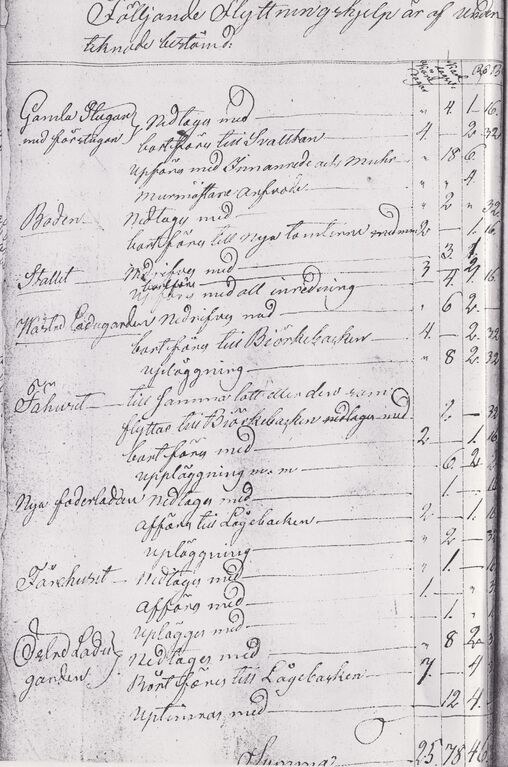 Följande Flyttningshjelp är af under
teknade bestämd:
Rd B
Gamla Stugan Nedtages med — " 4. 1. 16.
med förstugan bortföres till Svalltan — 4. — 2. 32
Upföres med Innanrede och Muhr — " 18 6.
Murmästare Arfvode — " " 4
Boden — Nedtages med — " 2 " 32
bortföres till nya tomterne — 2 — 1. 16.
Stallet — Nedrifves med — " 3. 1.
bortföres — 3 — 2.
Upföres med all inredning — 4. 1. 16
Wästra Ladugården Nedrifves med — " 6 2.
bortföres till Björkebacken — 4. — 2. 32
Uplöggning — " 8 2. 32
Fähuset — till samma lott eller den som
flyttas till Björkebacken nedtages med — 2. — 32
bortföres med — 2. — 1. 16
Upplöggning m. m — 6. 2.
Nya foderladan Nedtages med — 1. —
Afföres till Lågebacken — 2 — 1.
Uplöggning — " 2 —
Fårehuset — Nedtages med — " 1. —
Afföres med — 1. — "
Uplägges med — 1. "
Östra Ladu- Nedtages med — " 8 2
gården Bortföres till Lågebacken — 7. — 4
Uptimras med — 12 4.
Summa 25. 78 46